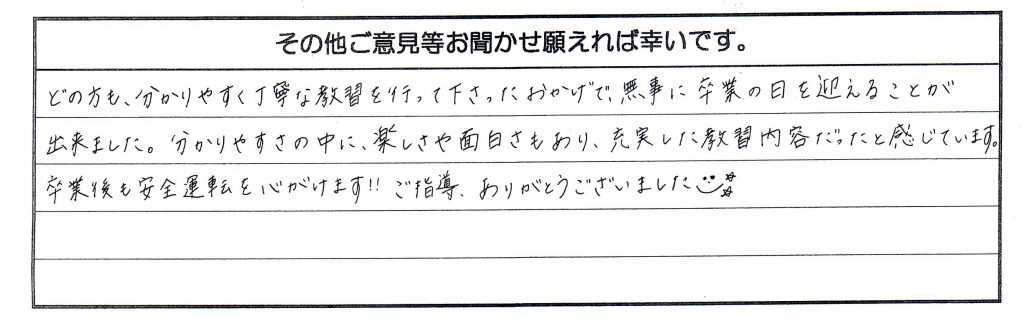 その他ご意見等お聞かせ願えれば幸いです。
どの方も、分かりやすく丁寧な教習を行って下さったおかげで、無事に卒業の日を迎えることが
出来ました。分かりやすさの中に、楽しさや面白さもあり、充実した教習内容だったと感じています。
卒業後も安全運転を心がけます!! ご指導、ありがとうございました